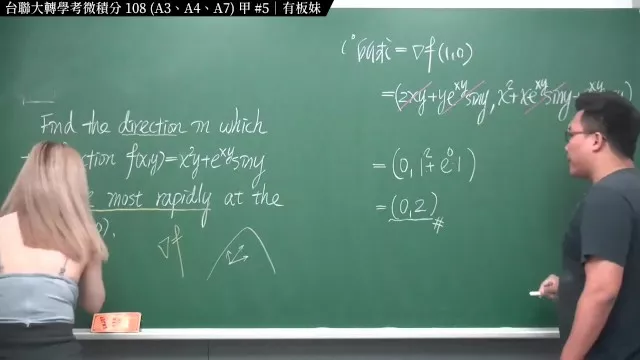 台聯大轉學考微積分 108 (A3、A4、A7) 甲 #5｜有板妹
Find the direction in which
ction f(x,y)=x²y+e^xy siny
most rapidly at the
0).
∇f
所求=∇f(1,0)
=(2xy+ye^xy siny, x²+xe^xy siny+
=(0,1²+e⁰·1)
=(0,2)#